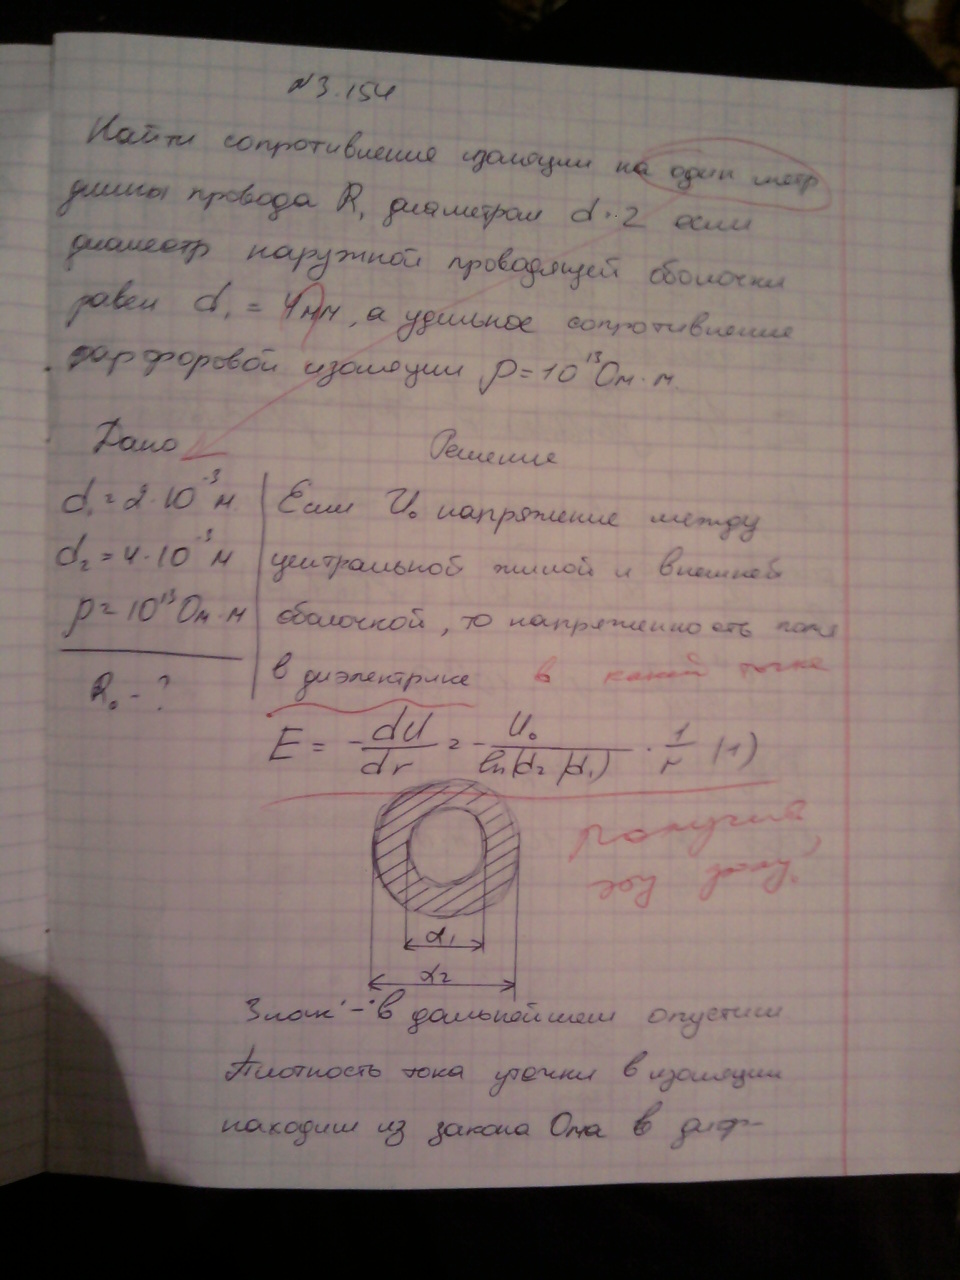 №3.154
Найти сопротивление изоляции на один метр
длины провода R, диаметром d = 2 если
диаметр наружной проводящей оболочки
равен d₁ = 4мм, а удельное сопротивление
фарфоровой изоляции ρ = 10¹³ Ом·м.
Дано
Решение
d₁ = 2·10⁻³ м
d₂ = 4·10⁻³ м
ρ = 10¹³ Ом·м
R₀ - ?
Если U₀ напряжение между
центральной жилой и внешней
оболочкой, то напряженность поля
в диэлектрике в какой точке
E = - dU/dr = - U₀/ln(d₂/d₁) · 1/r (1)
Получить
эту
d₁
d₂
Знак "-" в дальнейшем опустим
Плотность тока утечки в изоляции
находим из закона Ома в диф-